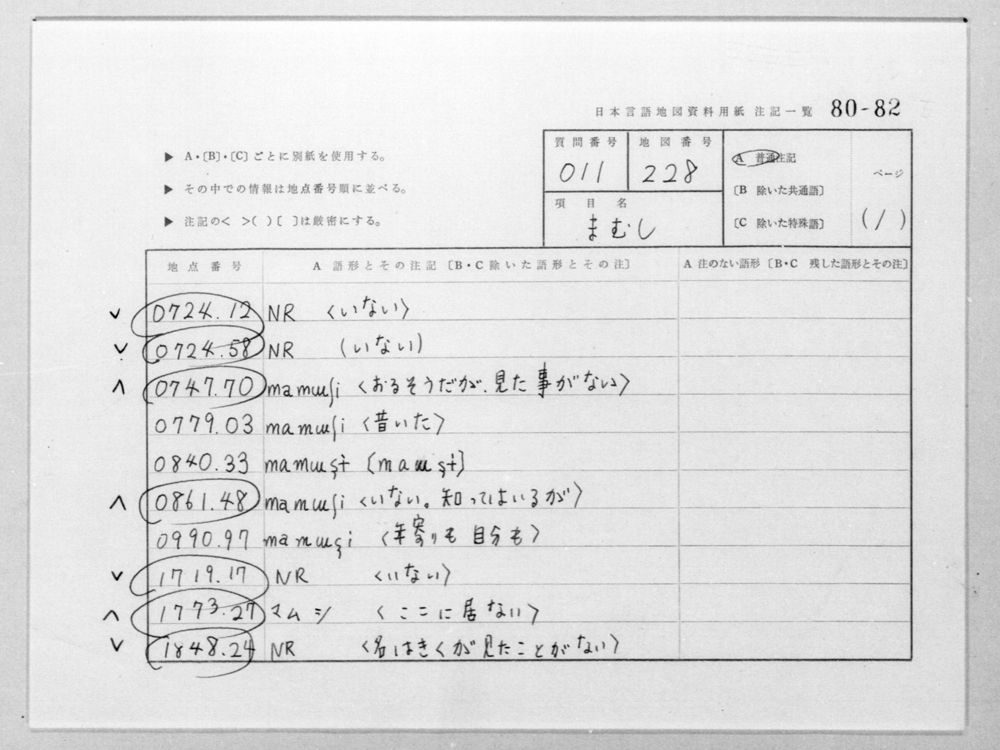 日本言語地図資料用紙 注記一覧 80-82
▶ A・〔B〕・〔C〕ごとに別紙を使用する。
▶ その中での情報は地点番号順に並べる。
▶ 注記の< >( )[ ]は厳密にする。
質問番号 地図番号
011 228
項目名
まむし
A 普通注記
〔B 除いた共通語〕
〔C 除いた特殊語〕
ページ
(/)
地点番号 A 語形とその注記〔B・C除いた語形とその注〕 A 注のない語形〔B・C 残した語形とその注〕
∨ 0724.12 NR 〈いない〉
∨ 0724.58 NR (いない)
∧ 0747.70 mamɯʃi 〈おるそうだが、見た事がない〉
0779.03 mamɯʃi 〈昔いた〉
0840.33 mamɯʂɨ [maɯʂɨ]
∧ 0861.48 mamɯʃi 〈いない。知ってはいるが〉
0990.97 mamɯçi 〈年寄りも自分も〉
∨ 1719.17 NR 〈いない〉
∧ 1773.27 マムシ 〈ここに居ない〉
∨ 1848.24 NR 〈名はきくが見たことがない〉